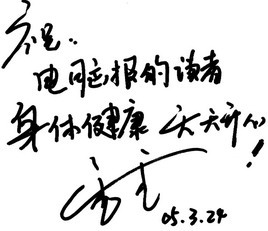 祝:
电脑报的读者
身体健康 天天开心!
05.3.24